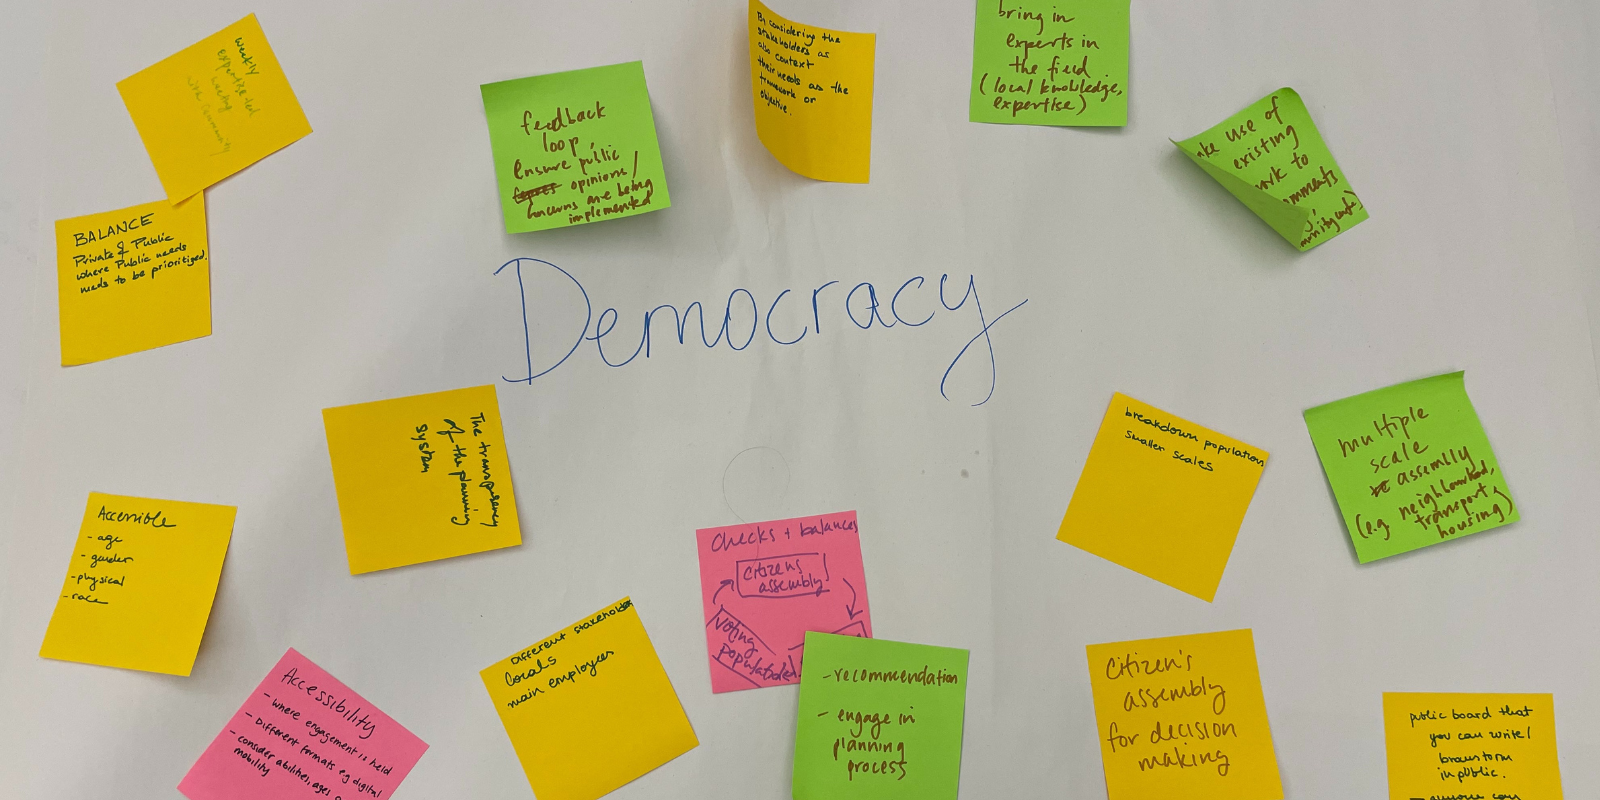 weekly
expertise led
meeting
with community
BALANCE
Private & Public
where Public needs
needs to be prioritized.
feedback
loop,
ensure public
opinions/
concerns are being
implemented
By considering the
stakeholders as
also context
their needs as the
framework or
objective.
bring in
experts in
the field
(local knowledge,
expertise)
use of
existing
to
Democracy
The transparency
of the planning
system
breakdown population
smaller scales
multiple
scale
assembly
(e.g. neighbourhood,
transport,
housing)
Accessible
- age
- gender
- physical
- race
checks + balances
citizens
assembly
voting
population
Different stakeholder
Locals
main employees
Accessibility
- where engagement is held
- Different formats eg digital
- consider abilities, ages
mobility
- recommendation
- engage in
planning
process
Citizen's
assembly
for decision
making
public board that
you can write/
brainstorm
in public.
- anyone can